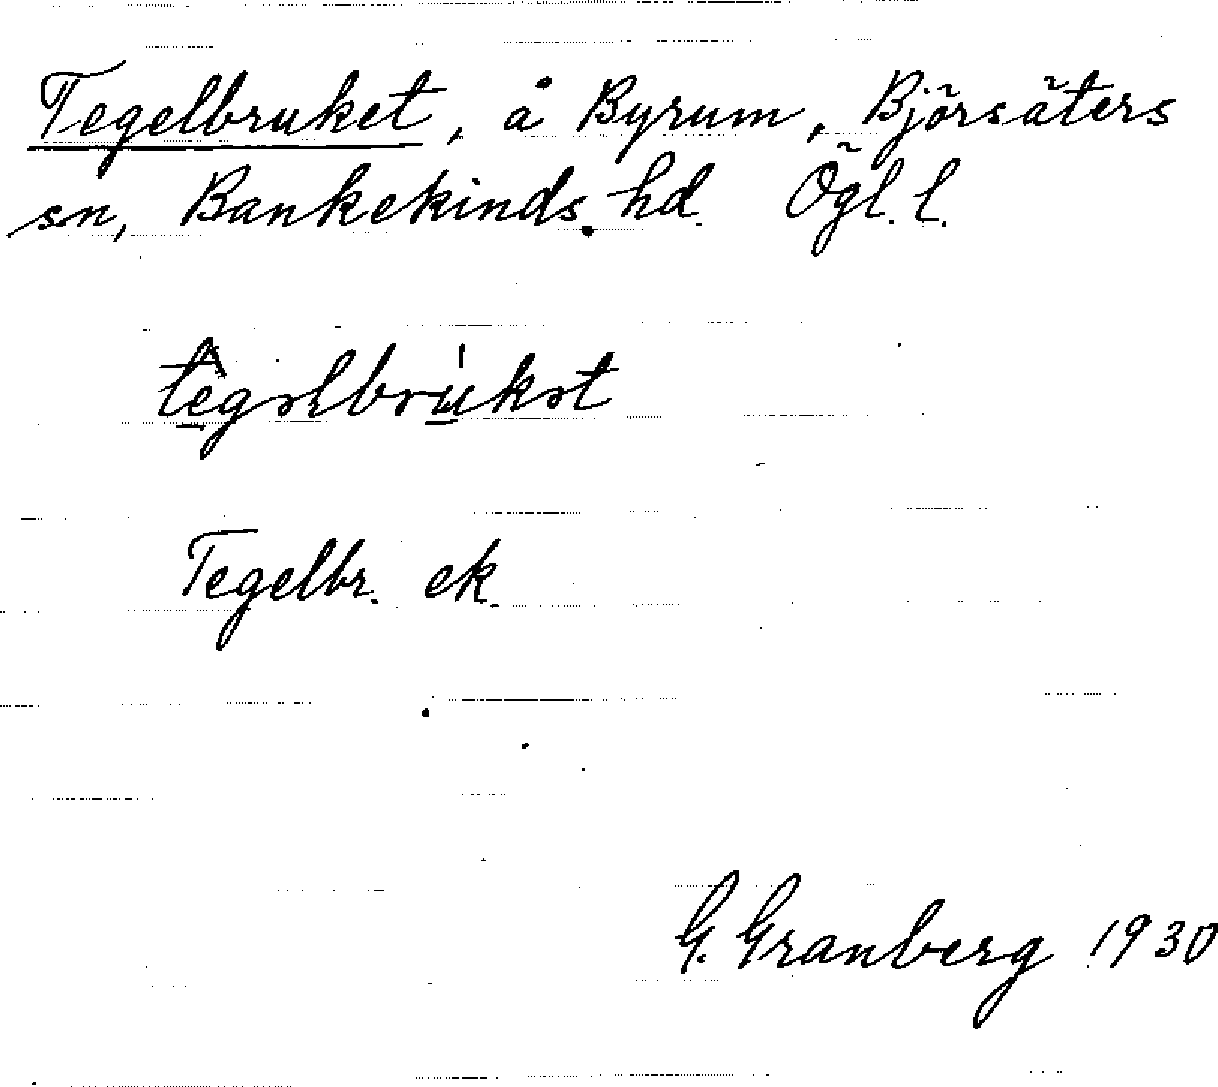 Tegelbruket, å Byrum, Björsäters
sn, Bankekinds hd. Ögl. l.
Tegelbr. ek.
G. Granberg 1930